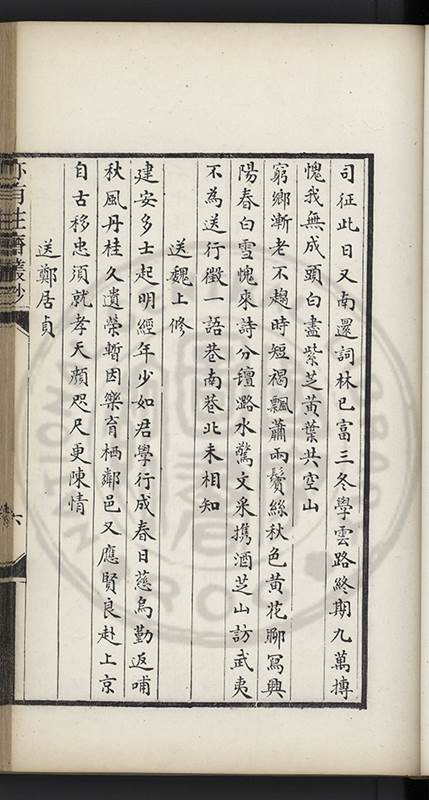 司征此日又南還詞林已富三冬學雲路終期九萬摶
愧我無成頭白盡紫芝黃葉共空山
窮鄉漸老不趨時短褐飄蕭兩鬢絲秋色黃花聊寫興
陽春白雪愧來詩分鐘潞水驚文采携酒芝山訪武夷
不為送行徵一語巷南巷北未相知
送魏上修
建安多士起明經年少如君學行成春日慈烏勤返哺
秋風丹桂久遺榮暫因樂育栖鄰邑又應賢良赴上京
自古移忠須就孝天顔咫尺更陳情
送鄭居貞
亦有生齋叢鈔
六